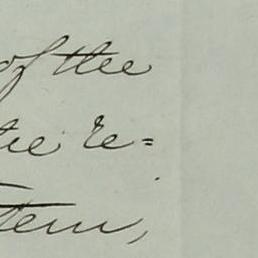 of the
the re=
tem,